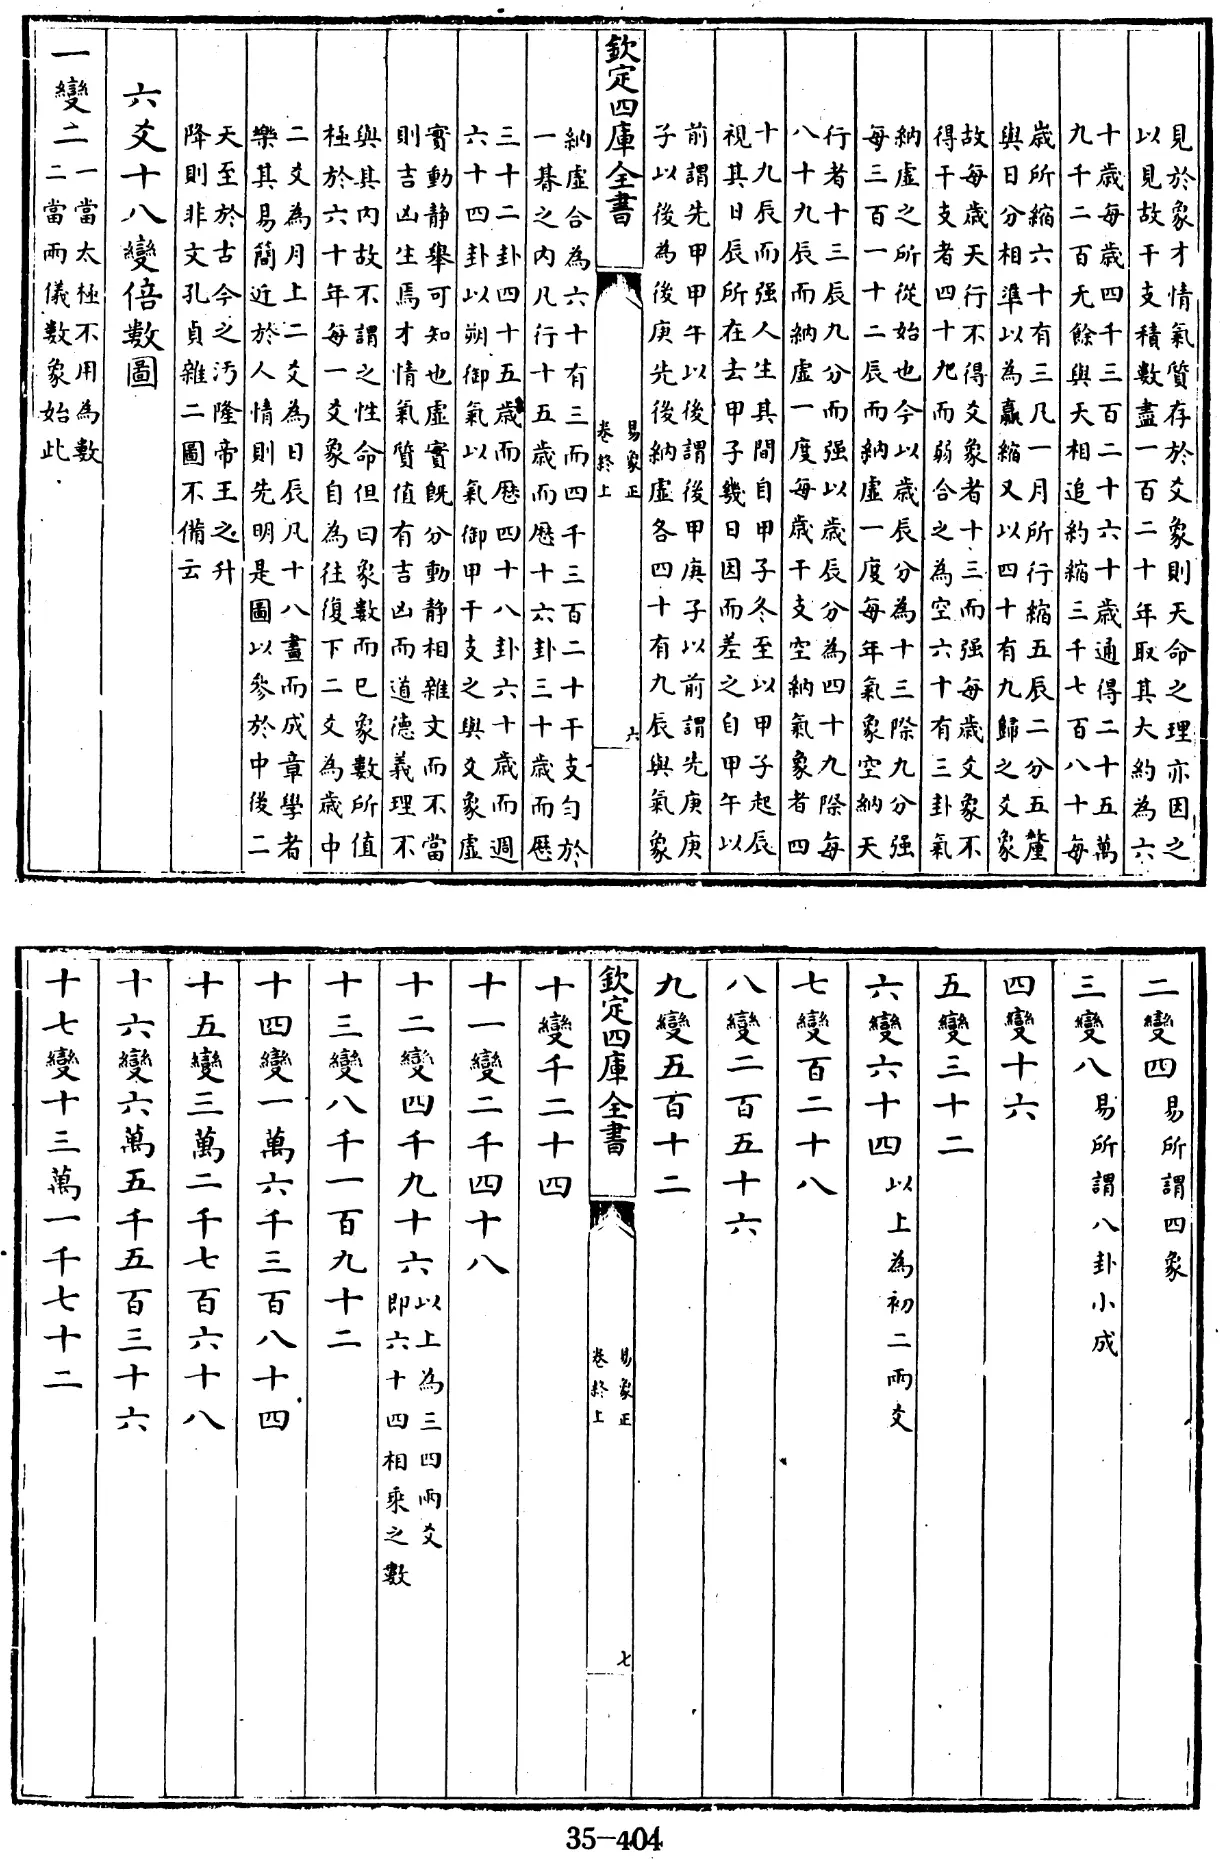 見於象才情氣質存於爻象則天命之理亦因之
以見故干支積數盡一百二十年取其大約為六
十歲每歲四千三百二十六十歲通得二十五萬
九千二百无餘與天相追約縮三千七百八十每
歲所縮六十有三凡一月所行縮五辰二分五釐
與日分相準以為贏縮又以四十有九歸之爻象
故每歲天行不得爻象者十三而强每歲爻象不
得干支者四十九而弱合之為空六十有三卦氣
納虛之所從始也今以歲辰分為十三際九分强
每三百一十二辰而納虛一度每年氣象空納天
行者十三辰九分而强以歲辰分為四十九際每
八十九辰而納虛一度每歲干支空納氣象者四
十九辰而强人生其間自甲子冬至以甲子起辰
視其日辰所在去甲子幾日因而差之自甲午以
前謂先甲甲午以後謂後甲庚子以前謂先庚庚
子以後為後庚先後納虛各四十有九辰與氣象
欽定四庫全書
易象正
卷終上
六
納虛合為六十有三而四千三百二十干支勻於
一朞之内凡行十五歲而歷十六卦三十歲而歷
三十二卦四十五歲而歷四十八卦六十歲而週
六十四卦以朔御氣以氣御甲干支之與爻象虛
實動靜舉可知也虛實既分動靜相雜文而不當
則吉凶生焉才情氣質值有吉凶而道德義理不
與其内故不謂之性命但曰象數而已象數所值
極於六十年每一爻象自為往復下二爻為歲中
二爻為月上二爻為日辰凡十八畫而成章學者
樂其易簡近於人情則先明是圖以參於中後二
天至於古今之汚隆帝王之升
降則非文孔貞雜二圖不備云
六爻十八變倍數圖
一變二
一當太極不用為數
二當兩儀數象始此
二變四 易所謂四象
三變八 易所謂八卦小成
四變十六
五變三十二
六變六十四 以上為初二兩爻
七變百二十八
八變二百五十六
九變五百十二
欽定四庫全書
易象正
卷終上
七
十變千二十四
十一變二千四十八
十二變四千九十六
以上為三四兩爻
即六十四相乘之數
十三變八千一百九十二
十四變一萬六千三百八十四
十五變三萬二千七百六十八
十六變六萬五千五百三十六
十七變十三萬一千七十二
35-404